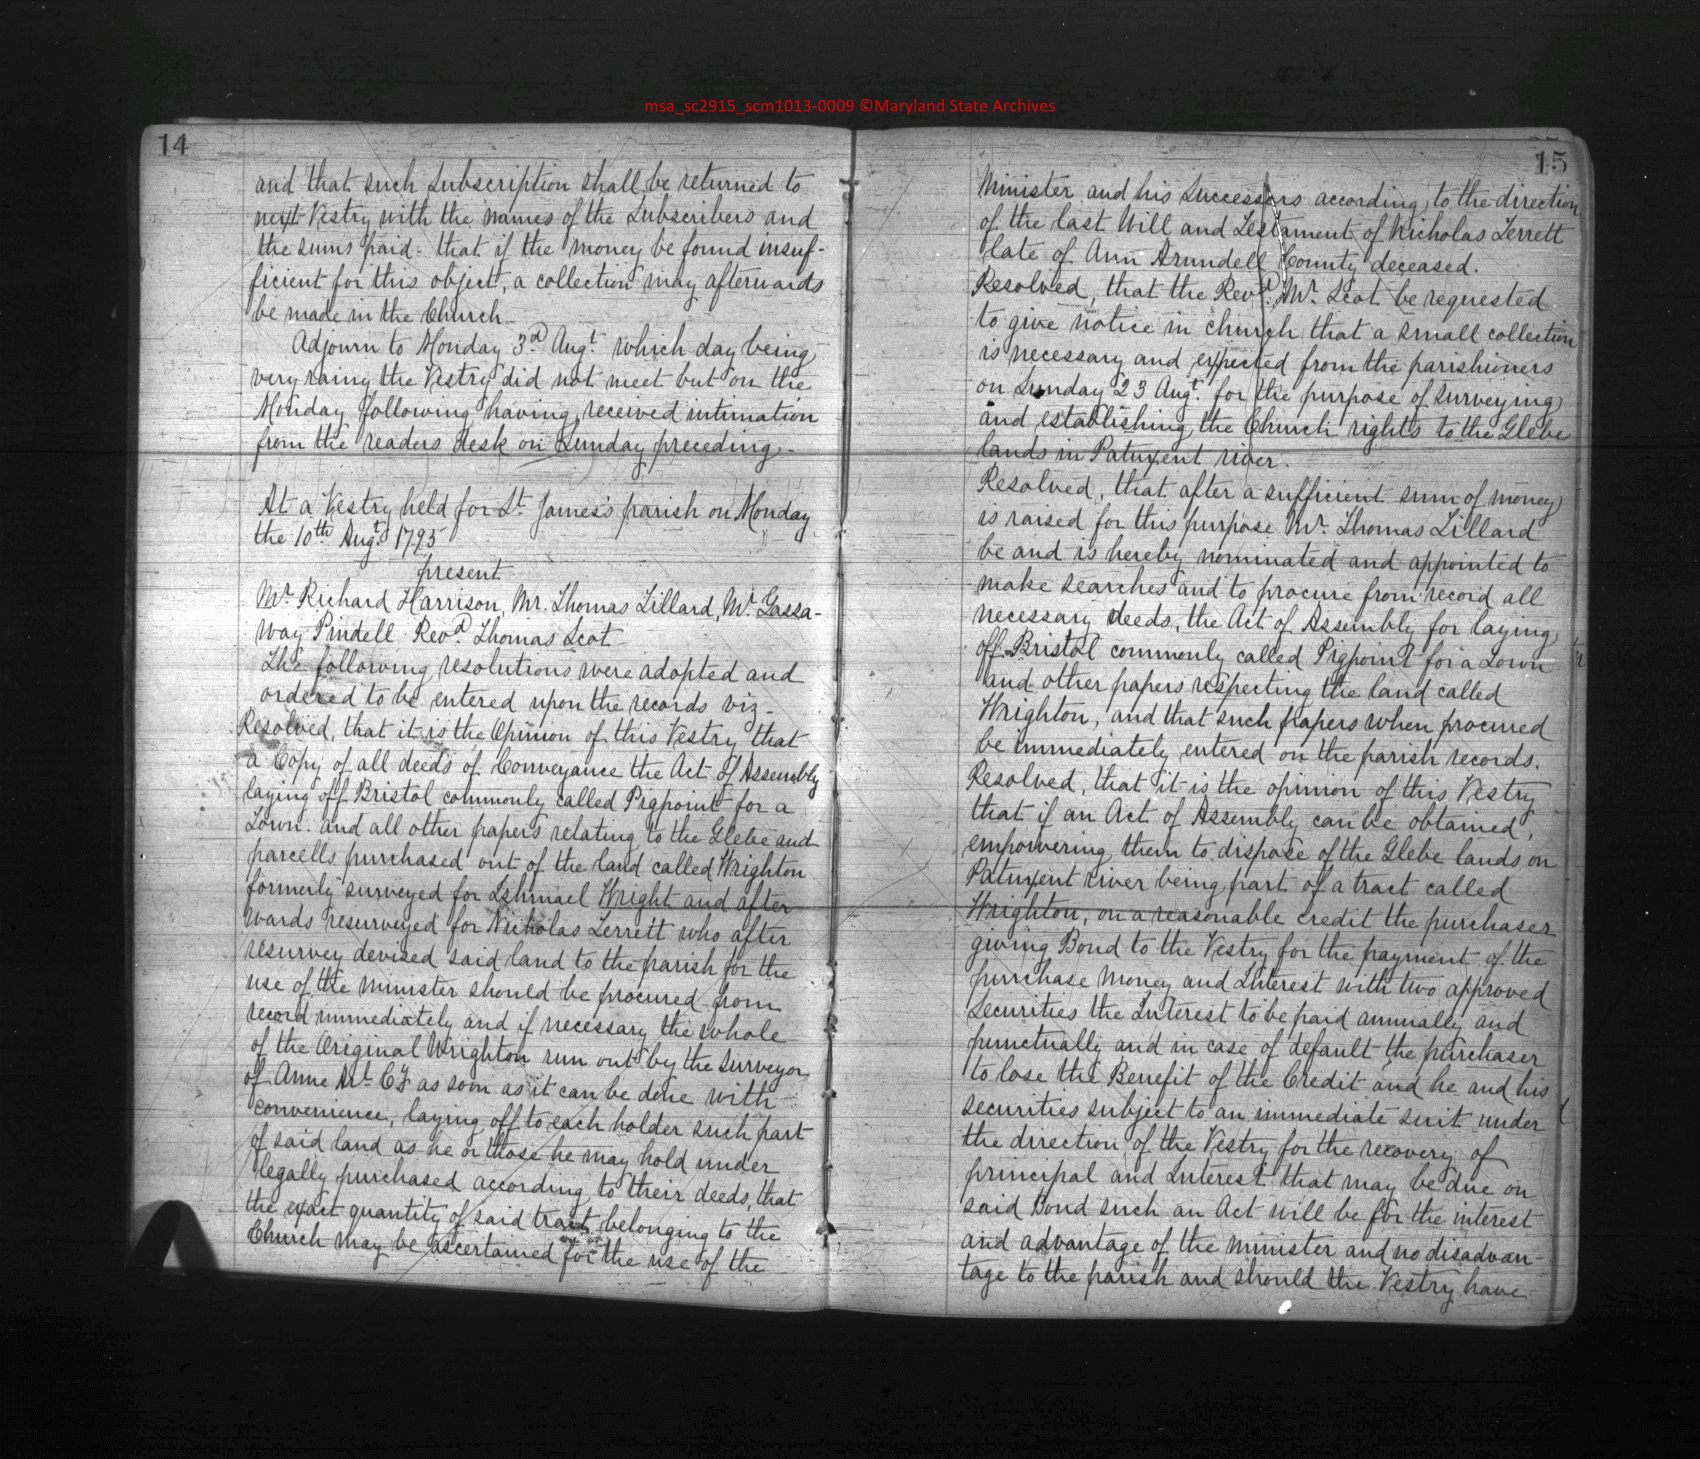 msa_sc2915_scm1013-0009 ©Maryland State Archives
14
and that such Subscription shall be returned to
next Vestry with the names of the Subscribers and
the sums paid. that if the money be found insuf-
ficient for this object, a collection may afterwards
be made in the Church
Adjourn to Monday 3d Augt. which day being
very rainy the Vestry did not meet but on the
Monday following having received intimation
from the readers desk on Sunday preceding.
At a Vestry held for St. James's parish on Monday
the 10th Augt. 1795
present
Mr. Richard Harrison, Mr. Thomas Tillard, Mr. Gassa-
way Pindell Revd. Thomas Scot
The following resolutions were adopted and
ordered to be entered upon the records viz-
Resolved, that it is the Opinion of this Vestry that
a Copy of all deeds of Conveyance the Act of Assembly
laying off Bristol commonly called Pigpoint for a
Town. and all other papers relating to the Glebe and
parcells purchased out of the land called Wrighton
formerly surveyed for Ishmael Wright and after
wards resurveyed for Nicholas Terrett who after
resurvey devised said land to the parish for the
use of the minister should be procured from
record immediately and if necessary the whole
of the Original Wrighton run out by the surveyor
of Anne Al. Cy as soon as it can be done with
convenience, laying off to each holder such part
of said land as he or those he may hold under
legally purchased according to their deeds, that
the exact quantity of said tract belonging to the
Church may be ascertained for the use of the
15
Minister and his Successors according to the direction
of the last Will and Testament of Nicholas Terrett
late of Ann Arundell County deceased.
Resolved, that the Revd. Mr. Scot be requested
to give notice in church that a small collection
is necessary and expected from the parishioners
on Sunday 23 Augt. for the purpose of surveying
and establishing the Church rights to the Glebe
lands in Patuxent river.
Resolved, that after a sufficient sum of money
is raised for this purpose Mr. Thomas Tillard
be and is hereby nominated and appointed to
make searches and to procure from record all
necessary deeds, the Act of Assembly for laying
off Bristol commonly called Pigpoint for a Town
and other papers respecting the land called
Wrighton, and that such papers when procured
be immediately entered on the parish records.
Resolved, that it is the opinion of this Vestry
that if an Act of Assembly can be obtained,
empowering them to dispose of the Glebe lands on
Patuxent river being part of a tract called
Wrighton, on a reasonable credit the purchaser
giving Bond to the Vestry for the payment of the
purchase money and Interest with two approved
Securities the Interest to be paid annually and
punctually and in case of default the purchaser
to lose the Benefit of the Credit and he and his
securities subject to an immediate suit under
the direction of the Vestry for the recovery of
principal and Interest that may be due on
said Bond such an Act will be for the interest
and advantage of the minister and no disadvan-
tage to the parish and should the Vestry have